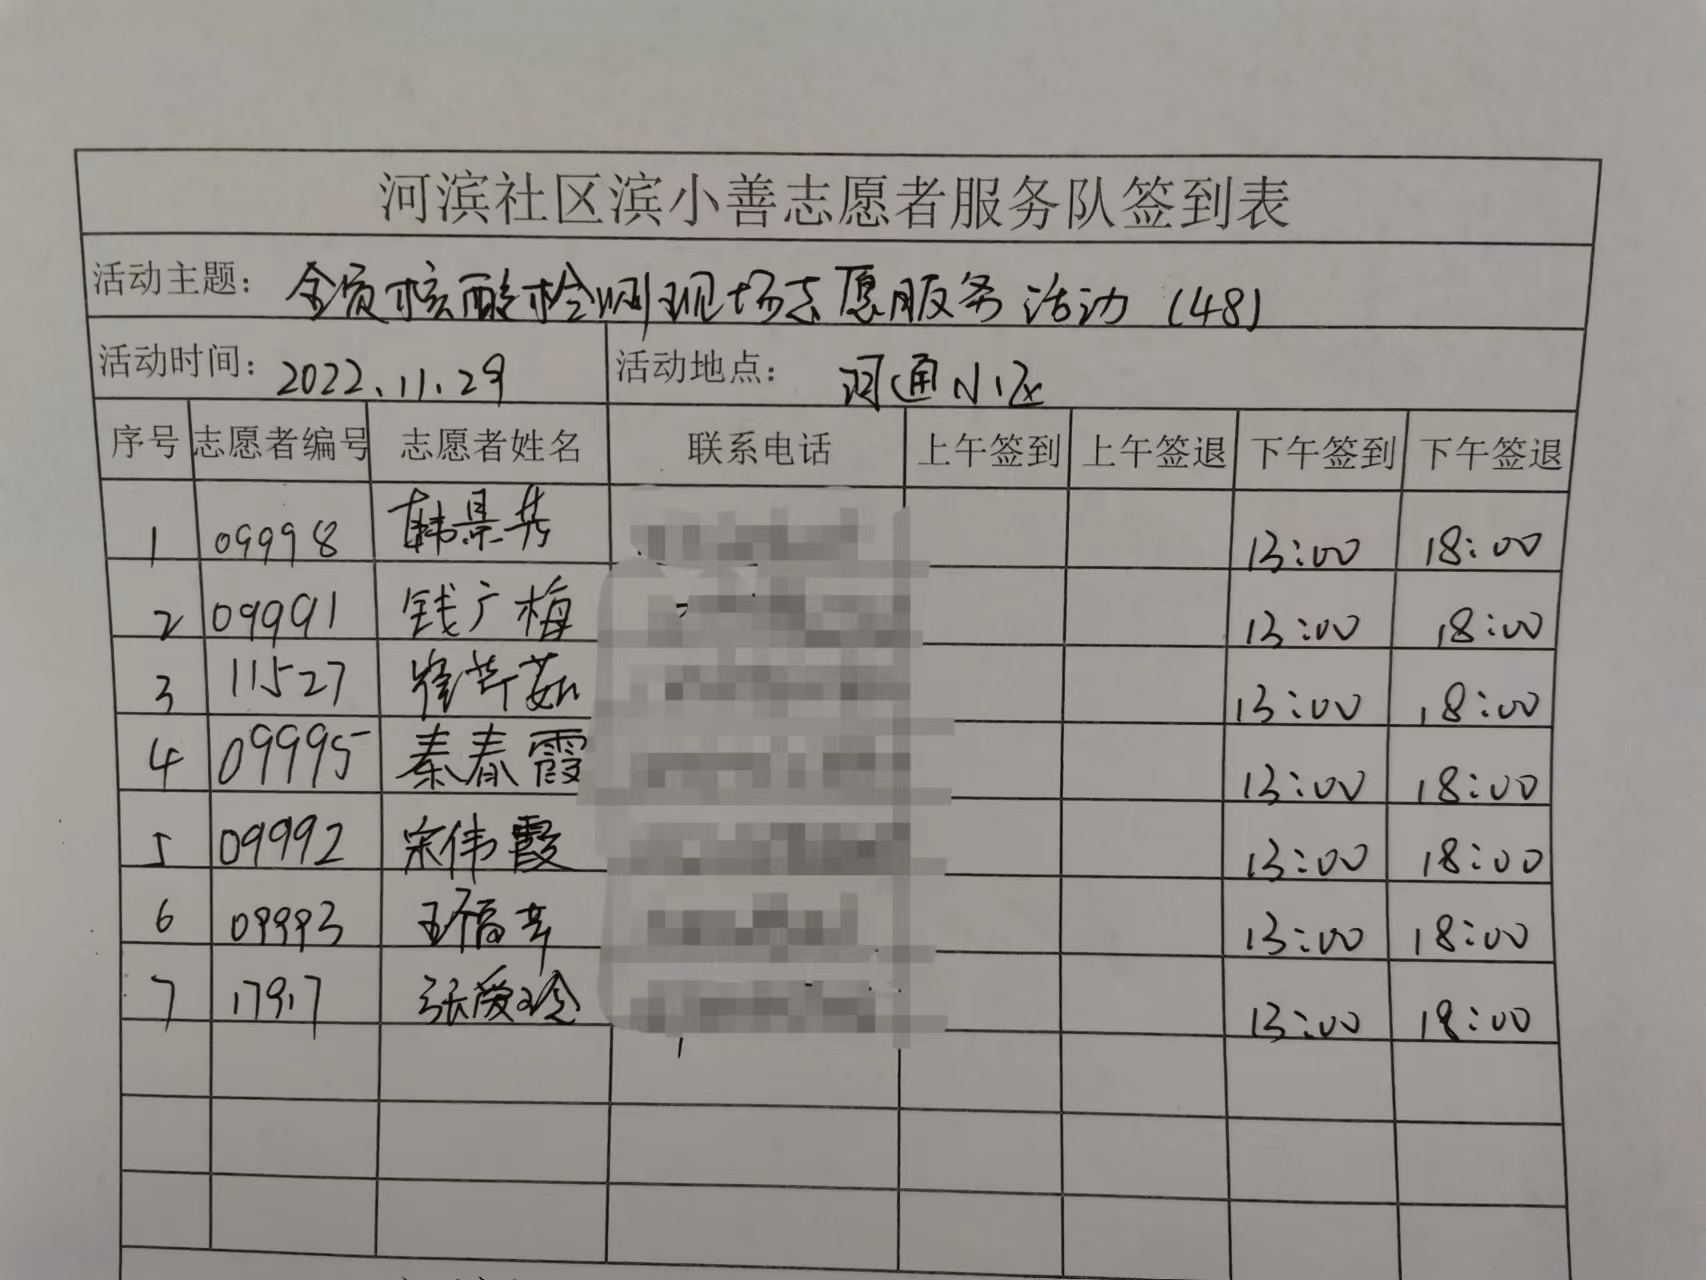 河滨社区滨小善志愿者服务队签到表
活动主题: 全员核酸检测现场志愿服务活动 (48)
活动时间: 2022.11.29 活动地点: 河通小区
序号 志愿者编号 志愿者姓名 联系电话 上午签到 上午签退 下午签到 下午签退
1 09998 韩景芳 13:00 18:00
2 09991 钱广梅 13:00 18:00
3 11527 13:00 18:00
4 09995 秦春霞 13:00 18:00
5 09992 宋伟霞 13:00 18:00
6 09993 13:00 18:00
7 17917 张爱玲 13:00 18:00